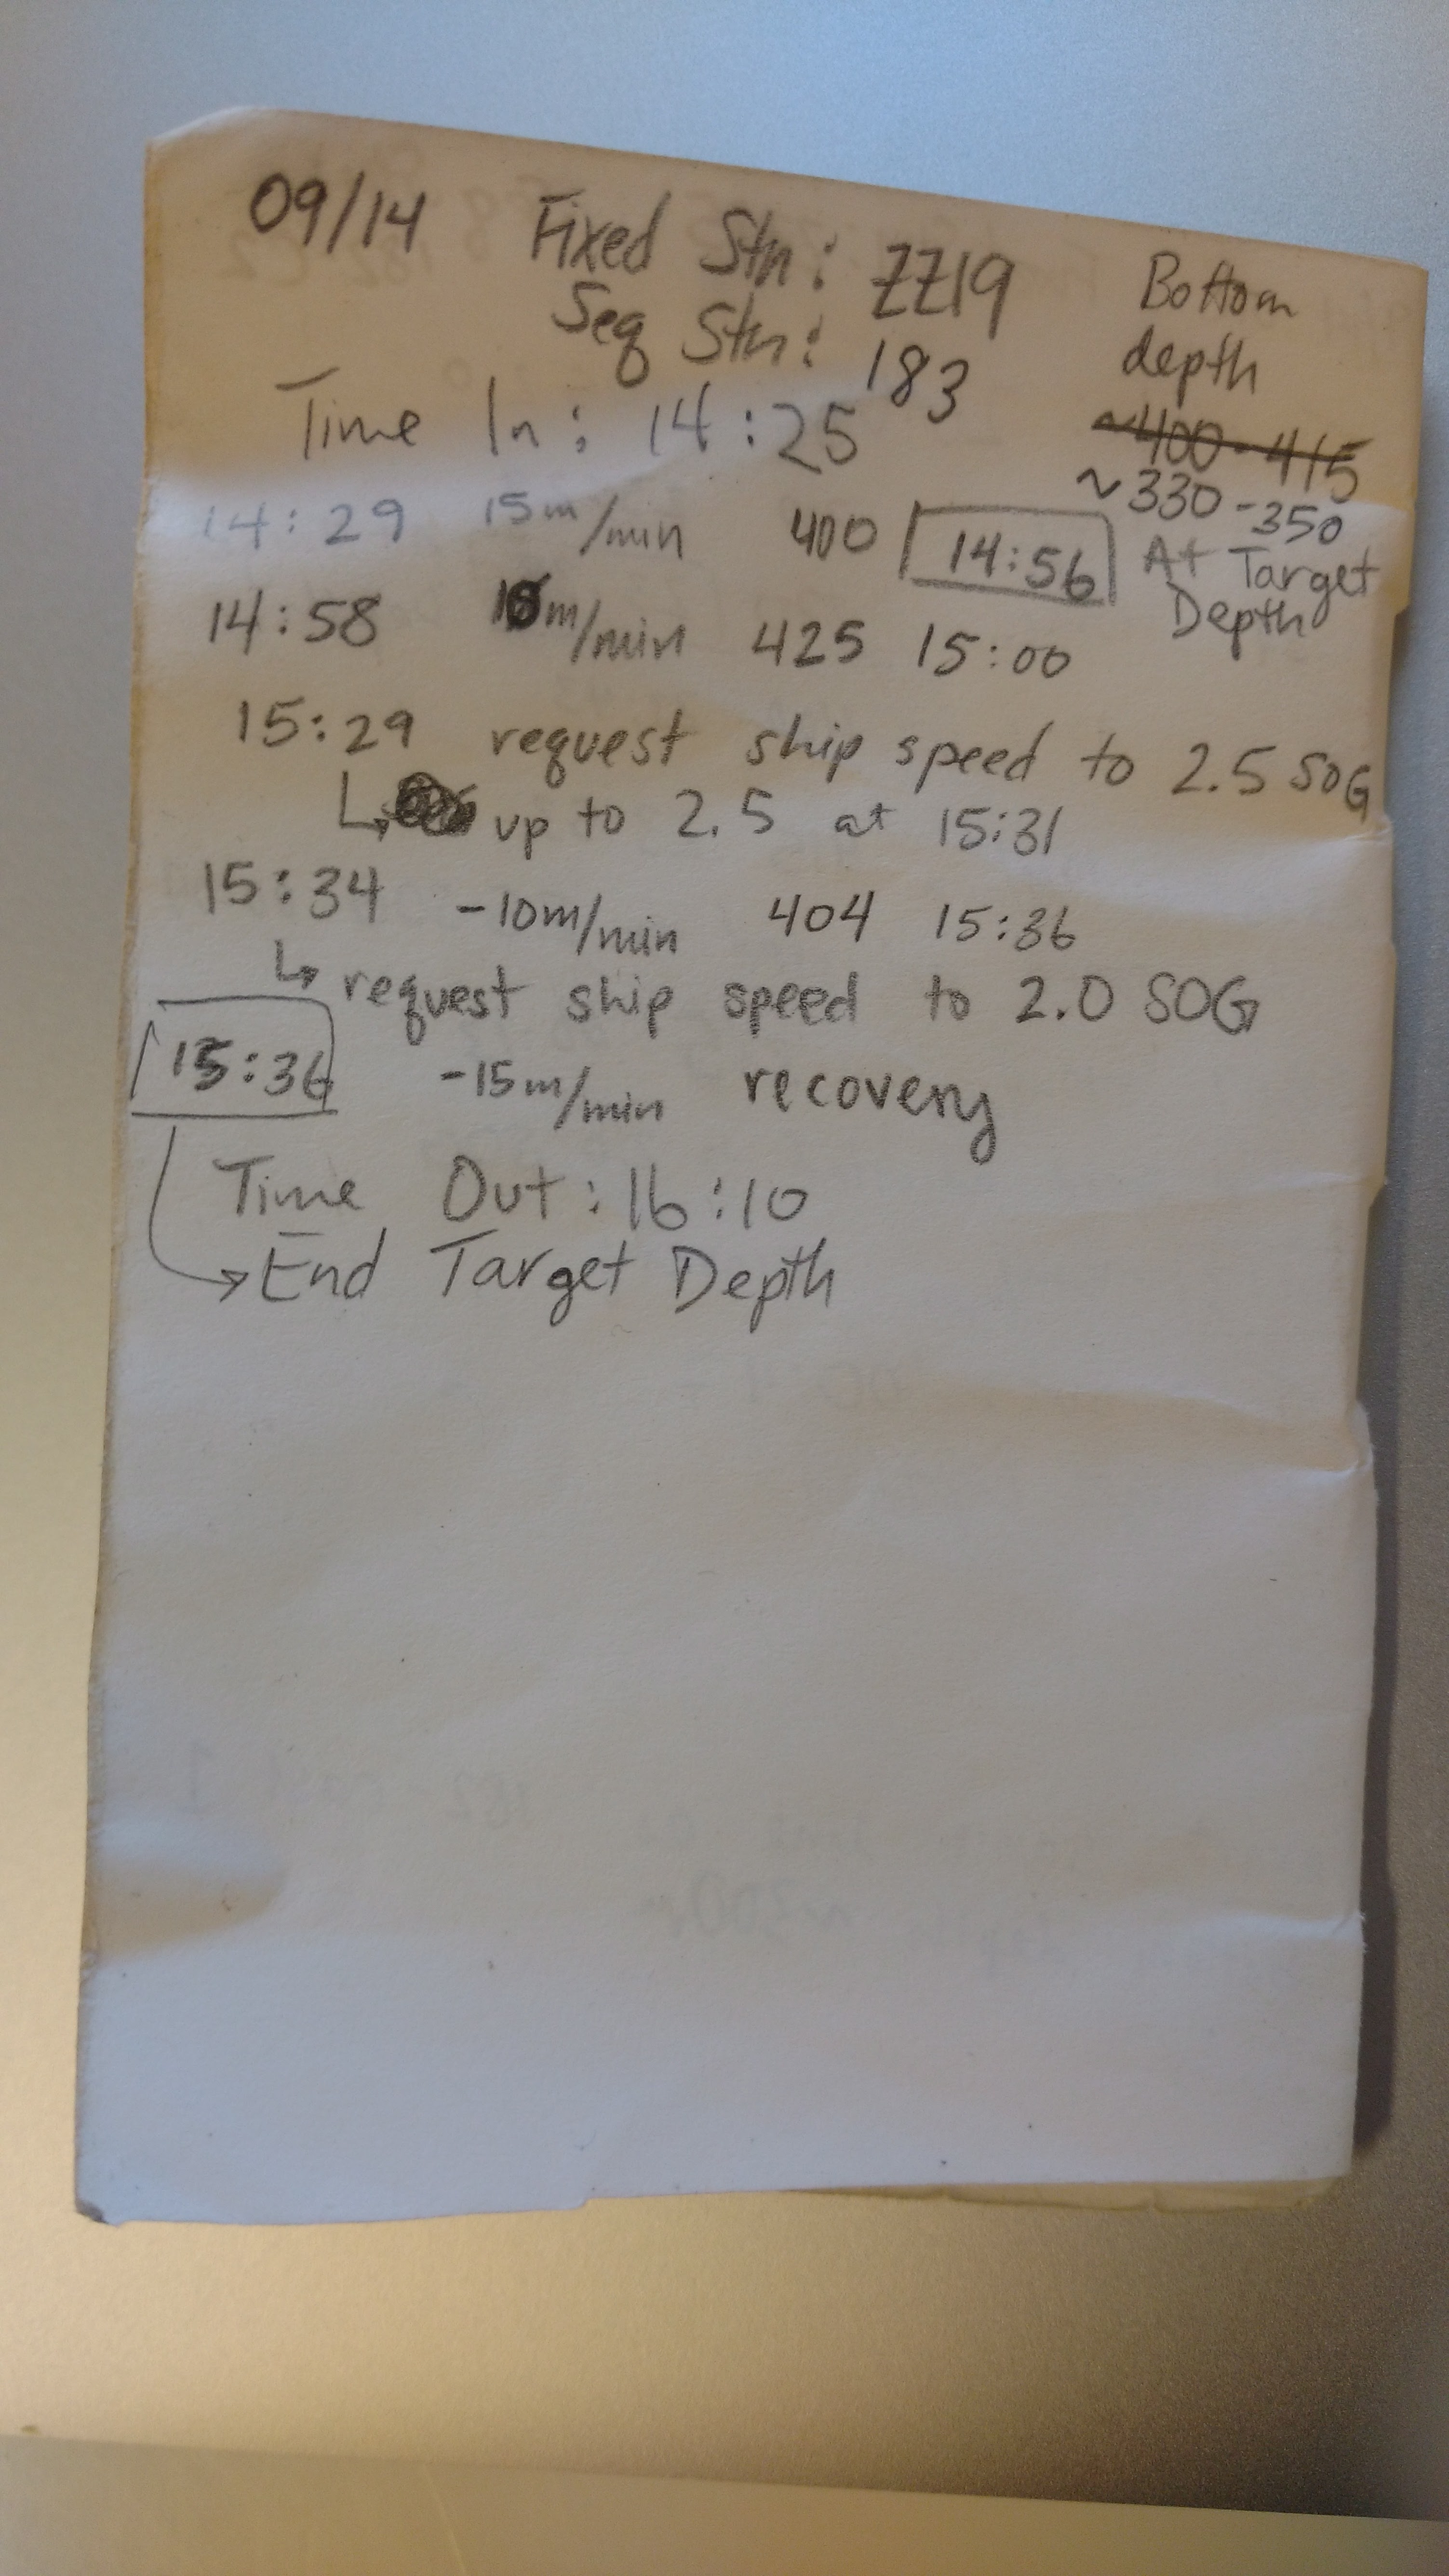 09/14 Fixed Stn: ZZ19
Seq Stn: 183
Bottom
depth
~400-415
~330-350
Time In: 14:25
14:29 15m/min 400 14:56 At Target
Depth
14:58 m/min 425 15:00
15:29 request ship speed to 2.5 SOG
↳ up to 2.5 at 15:31
15:34 -10m/min 404 15:36
↳ request ship speed to 2.0 SOG
15:36 -15m/min recovery
Time Out: 16:10
→ End Target Depth